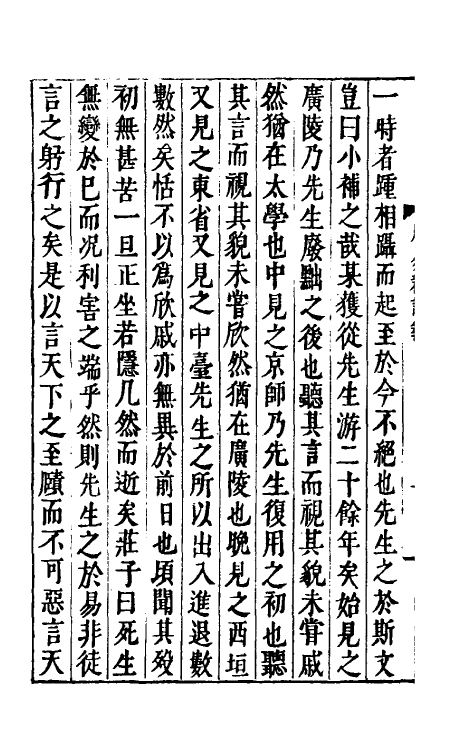 一時者踵相躡而起至於今不絕也先生之於斯文
豈曰小補之哉某獲從先生游二十餘年矣始見之
廣陵乃先生廢黜之後也聽其言而視其貌未嘗戚
然猶在太學也中見之京師乃先生復用之初也聽
其言而視其貌未嘗欣然猶在廣陵也晚見之西垣
又見之東省又見之中臺先生之所以出入進退數
數然矣恬不以爲欣戚亦無異於前日也頃聞其歿
初無甚苦一旦正坐若隱几然而逝矣莊子曰死生
無變於已而况利害之端乎然則先生之於易非徒
言之躬行之矣是以言天下之至賾而不可惡言天